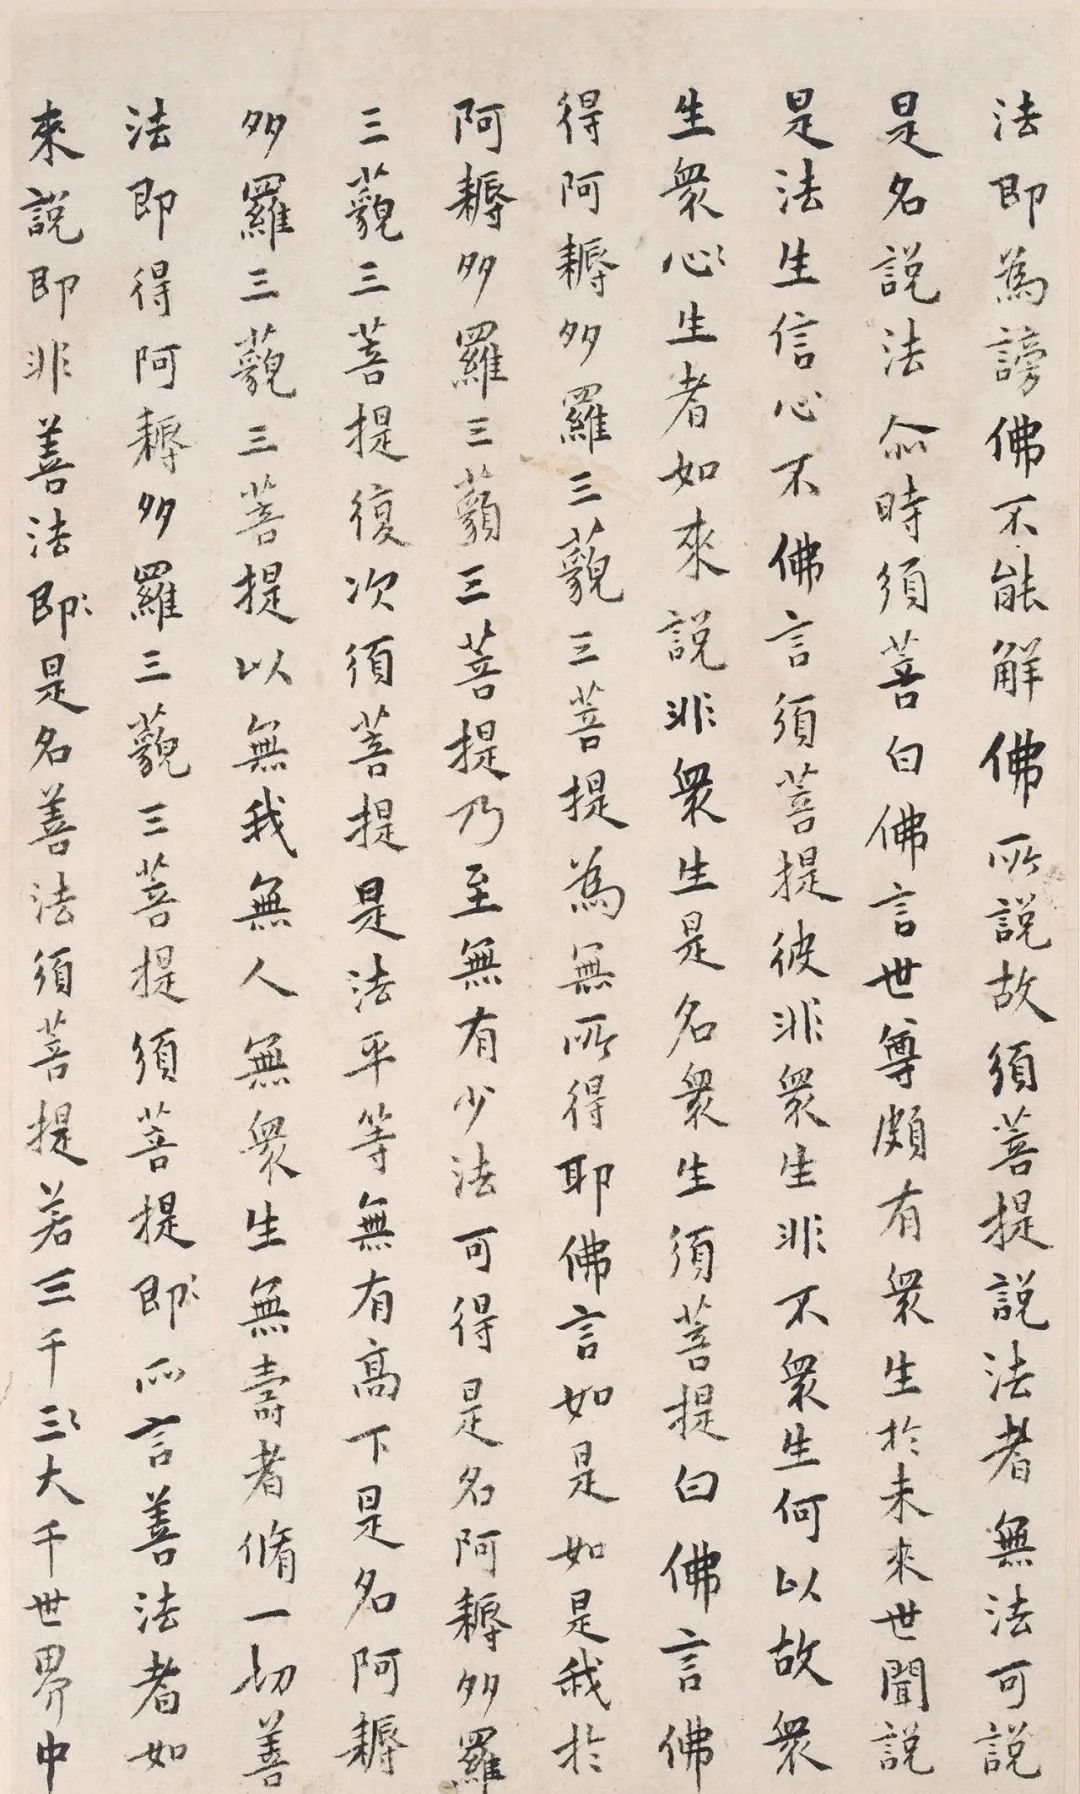 法即為謗佛不能解佛所說故須菩提說法者無法可說
是名說法尒時須菩白佛言世尊頗有衆生於未来世聞說
是法生信心不佛言須菩提彼非衆生非不衆生何以故衆
生衆心生者如來說非衆生是名衆生須菩提白佛言佛
得阿耨多羅三藐三菩提為無所得耶佛言如是如是我於
阿耨多羅三藐三菩提乃至無有少法可得是名阿耨多羅
三藐三菩提復次須菩提是法平等無有高下是名阿耨
多羅三藐三菩提以無我無人無衆生無壽者脩一切善
法即得阿耨多羅三藐三菩提須菩提即所言善法者如
來說即非善法即是名善法須菩提若三千三大千世界中